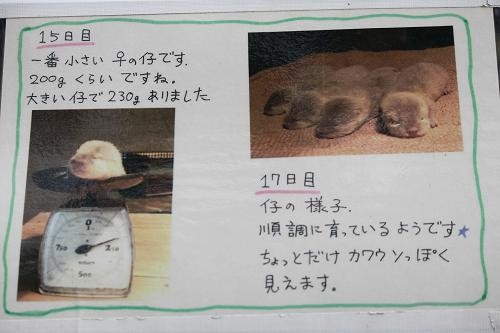 15日目
一番 小さい ♀の仔です.
200g くらい ですね。
大きい仔で 230g ありました
0
750
250
500
17日目
仔の 様子.
順調に育っている ようです★
ちょっとだけ カワウソっぽく
見えます。